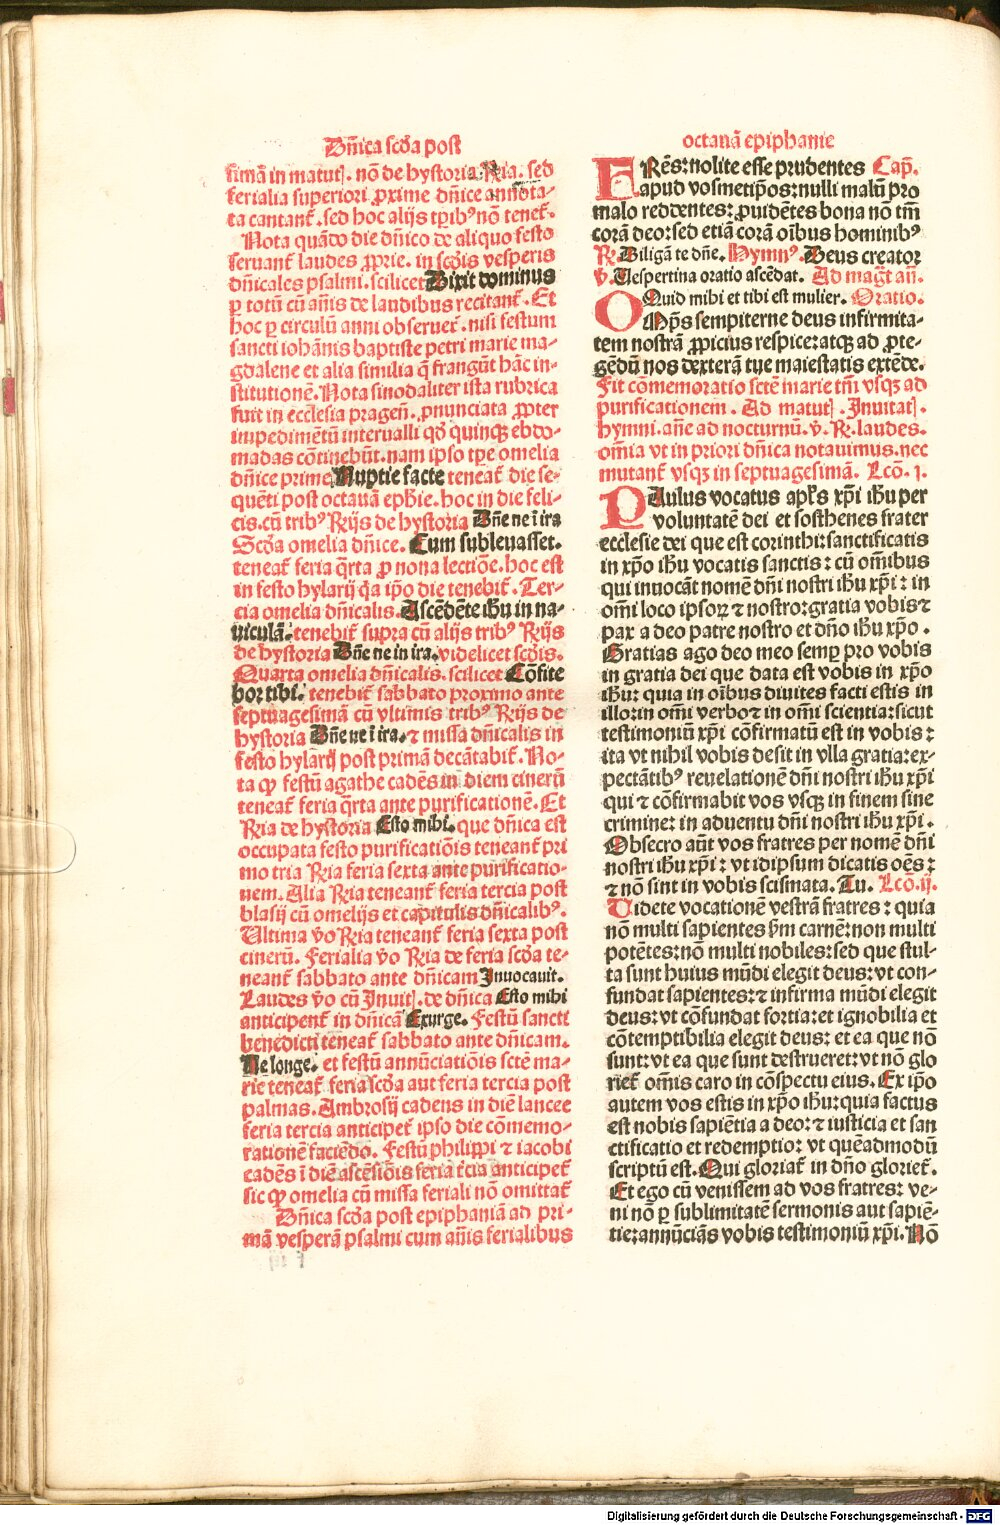 Dñica scďa post
simã in matutꝭ. nõ de hystoria. Ria. sed
ferialia superiori ꝓxime dñice annota-
ta cantant᷑. sed hoc alijs tꝑibꝰ nõ tenet᷑.
Nota quãdo die dñico de aliquo festo
seruant᷑ laudes ꝓprie. in scďis vesperis
dñicales psalmi. scilicet Dixit dominus
ꝑ totũ cũ añis de laudibus recitant᷑. Et
hoc ꝑ circulũ anni obseruet᷑. nisi festum
sancti iohãnis baptiste petri marie ma-
gdalene et alia similia q̃ frangũt hãc in-
stitutionẽ. Nota sinodaliter ista rubrica
fuit in ecclesia pragen̄. ꝓnunciata ꝓpter
impedimẽtũ interualli qď quinqꝫ ebdo-
madas cõtinebũt. nam ipso tꝑe omelia
dñice prime Nuptie facte teneat᷑ die se-
quẽti post octauã eph̄ie. hoc in die feli-
cis. cũ tribꝰ Rijs de hystoria Dñe ne ĩ ira
Scďa omelia dñice. Cum subleuasset.
teneat᷑ feria q̃rta ꝓ nona lectiõe. hoc est
in festo hylarij q̃a ipo die tenebit᷑. Ter-
cia omelia dñicalis. Ascẽdẽte ihũ in na-
uiculã. tenebit᷑ supra cũ alijs tribꝰ Rijs
de hystoria Dñe ne in ira. videlicet scďis.
Quarta omelia dñicalis. scilicet Cõfite
bor tibi. tenebit᷑ sabbato proximo ante
septuagesimã cũ vltimis tribꝰ Rijs de
hystoria Dñe ne ĩ ira. ⁊ missa dñicalis in
festo hylarij post primã decãtabit᷑. No-
ta ꝙ festũ agathe cadẽs in diem cinerũ
teneat᷑ feria q̃rta ante purificationẽ. Et
Ria de hystoria Esto mihi. que dñica est
occupata festo purificatiõis teneant᷑ pri
mo tria Ria feria sexta ante purificatio-
nem. Alia Ria teneant᷑ feria tercia post
blasij cũ omelijs et capitulis dñicalibꝰ.
Ultima v̊o Ria teneant᷑ feria sexta post
cinerũ. Ferialia v̊o Ria de feria scďa te-
neant᷑ sabbato ante dñicam Inuocauit.
Laudes v̊o cũ Inuitꝭ. de dñica Esto mihi
anticipent᷑ in dñicã Exurge. Festũ sancti
benedicti teneat᷑ sabbato ante dñicam.
Ne longe. et festũ annũciatiõis scte᷑ ma-
rie teneat᷑ feria scďa aut feria tercia post
palmas. Ambrosij cadens in diẽ lancee
feria tercia anticipet᷑ ipso die cõmemo-
rationẽ faciẽdo. Festũ philippi ⁊ iacobi
cadẽs ĩ diẽ ascẽsiõis feria t̃cia anticipet᷑
sic ꝙ omelia cũ missa feriali nõ omittat᷑
Dñica scďa post epiphaniã ad pri-
mã vesperã psalmi cum añis ferialibus
octauã epiphanie
FRẽs: nolite esse prudentes Cap̃.
apud vosmetip̃os: nulli malũ pro
malo reddentes: ꝓuidẽtes bona nõ tm̃
corã deo: sed etiã corã oĩbus hominibꝰ
R̃. Diligã te dñe. Hymnꝰ. Deus creator
v̊. Uespertina oratio ascẽdat. Ad mag̃t añ.
Quid mihi et tibi est mulier. Oratio.
OMp̃s sempiterne deus infirmita-
tem nostrã ꝓpicius respice: atqꝫ ad ꝓte-
gẽdũ nos dexterã tue maiestatis extẽde.
Fit cõmemoratio scte᷑ marie tm̃ vsqꝫ ad
purificationem. Ad matutꝭ. Inuitatꝭ.
hymni. añe ad nocturnũ. v̊. R̃. laudes.
om̃ia vt in priori dñica notauimus. nec
mutant᷑ vsqꝫ in septuagesimã. Lcõ. j.
PAulus vocatus apl̃s xp̃i ihũ per
voluntatẽ dei et sosthenes frater
ecclesie dei que est corinthi: sanctificatis
in xp̃o ihũ vocatis sanctis: cũ om̃ibus
qui inuocãt nomẽ dñi nostri ihũ xp̃i: in
om̃i loco ipsoꝝ ⁊ nostro: gratia vobis ⁊
pax a deo patre nostro et dño ihũ xp̃o.
Gratias ago deo meo semꝑ pro vobis
in gratia dei que data est vobis in xp̃o
ihũ: quia in oĩbus diuites facti estis in
illo: in om̃i verbo ⁊ in om̃i scientia: sicut
testimoniũ xp̃i cõfirmatũ est in vobis:
ita vt nihil vobis desit in vlla gratia: ex-
pectãtibꝰ reuelationẽ dñi nostri ihũ xp̃i
qui ⁊ cõfirmabit vos vsqꝫ in finem sine
crimine: in aduentu dñi nostri ihũ xp̃i.
Obsecro aũt vos fratres per nomẽ dñi
nostri ihũ xp̃i: vt idipsum dicatis oẽs:
⁊ nõ sint in vobis scismata. Tu. Lcõ. ij.
Uidete vocationẽ vestrã fratres: quia
nõ multi sapientes ẜm carnẽ: non multi
potẽtes: nõ multi nobiles: sed que stul-
ta sunt huius mũdi elegit deus: vt con-
fundat sapientes: ⁊ infirma mũdi elegit
deus: vt cõfundat fortia: et ignobilia et
cõtemptibilia elegit deus: et ea que nõ
sunt: vt ea que sunt destrueret: vt nõ glo
riet᷑ om̃is caro in cõspectu eius. Ex ip̃o
autem vos estis in xp̃o ihũ: quia factus
est nobis sapiẽtia a deo: ⁊ iusticia et san
ctificatio et redemptio: vt quẽadmodũ
scriptũ est. Qui gloriat᷑ in dño gloriet᷑.
Et ego cũ venissem ad vos fratres: ve-
ni nõ ꝑ sublimitatẽ sermonis aut sapiẽ-
tie: annũciãs vobis testimoniũ xp̃i. Nõ
Digitalisierung gefördert durch die Deutsche Forschungsgemeinschaft - DFG